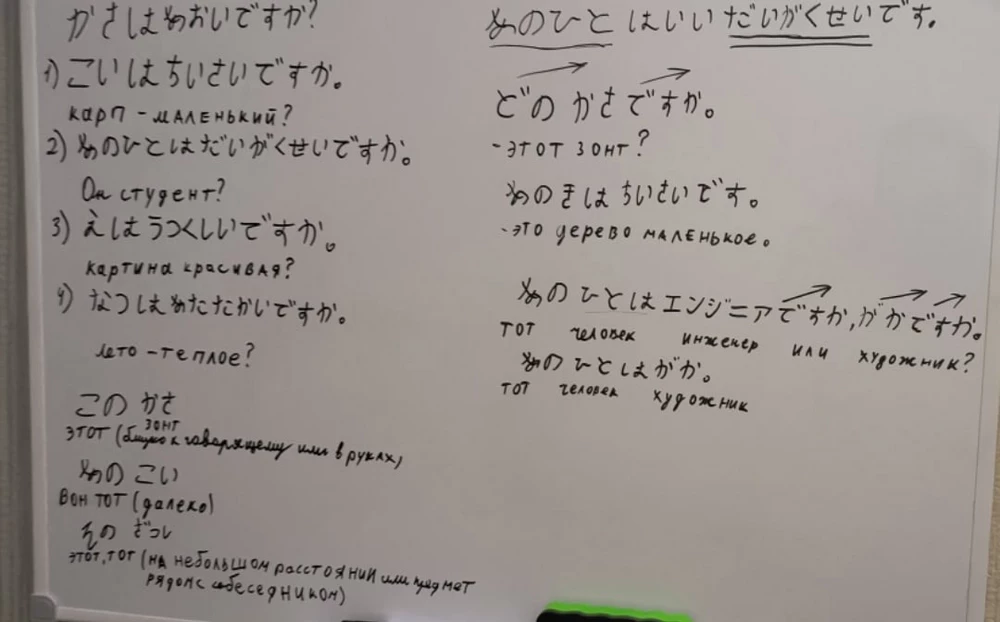 かさはあおいですか?
1) こいはちいさいですか。
карп - маленький?
2) あのひとはだいがくせいですか。
Он студент?
3) えはうつくしいですか。
картина красивая?
4) なつはあたたかいですか。
лето - теплое?
このかさ
зонт
этот (близко к говарящему или в руках)
あのこい
вон тот (далеко)
そのざっし
этот, тот (на небольшом расстояний или предмет
рядом с собеседником)
あのひとはいいだいがくせいです。
どのかさですか。
- этот зонт?
あのきはちいさいです。
- это дерево маленькое.
あのひとはエンジニアですか, がかですか。
тот человек инженер или художник?
あのひとはがか。
тот человек художник